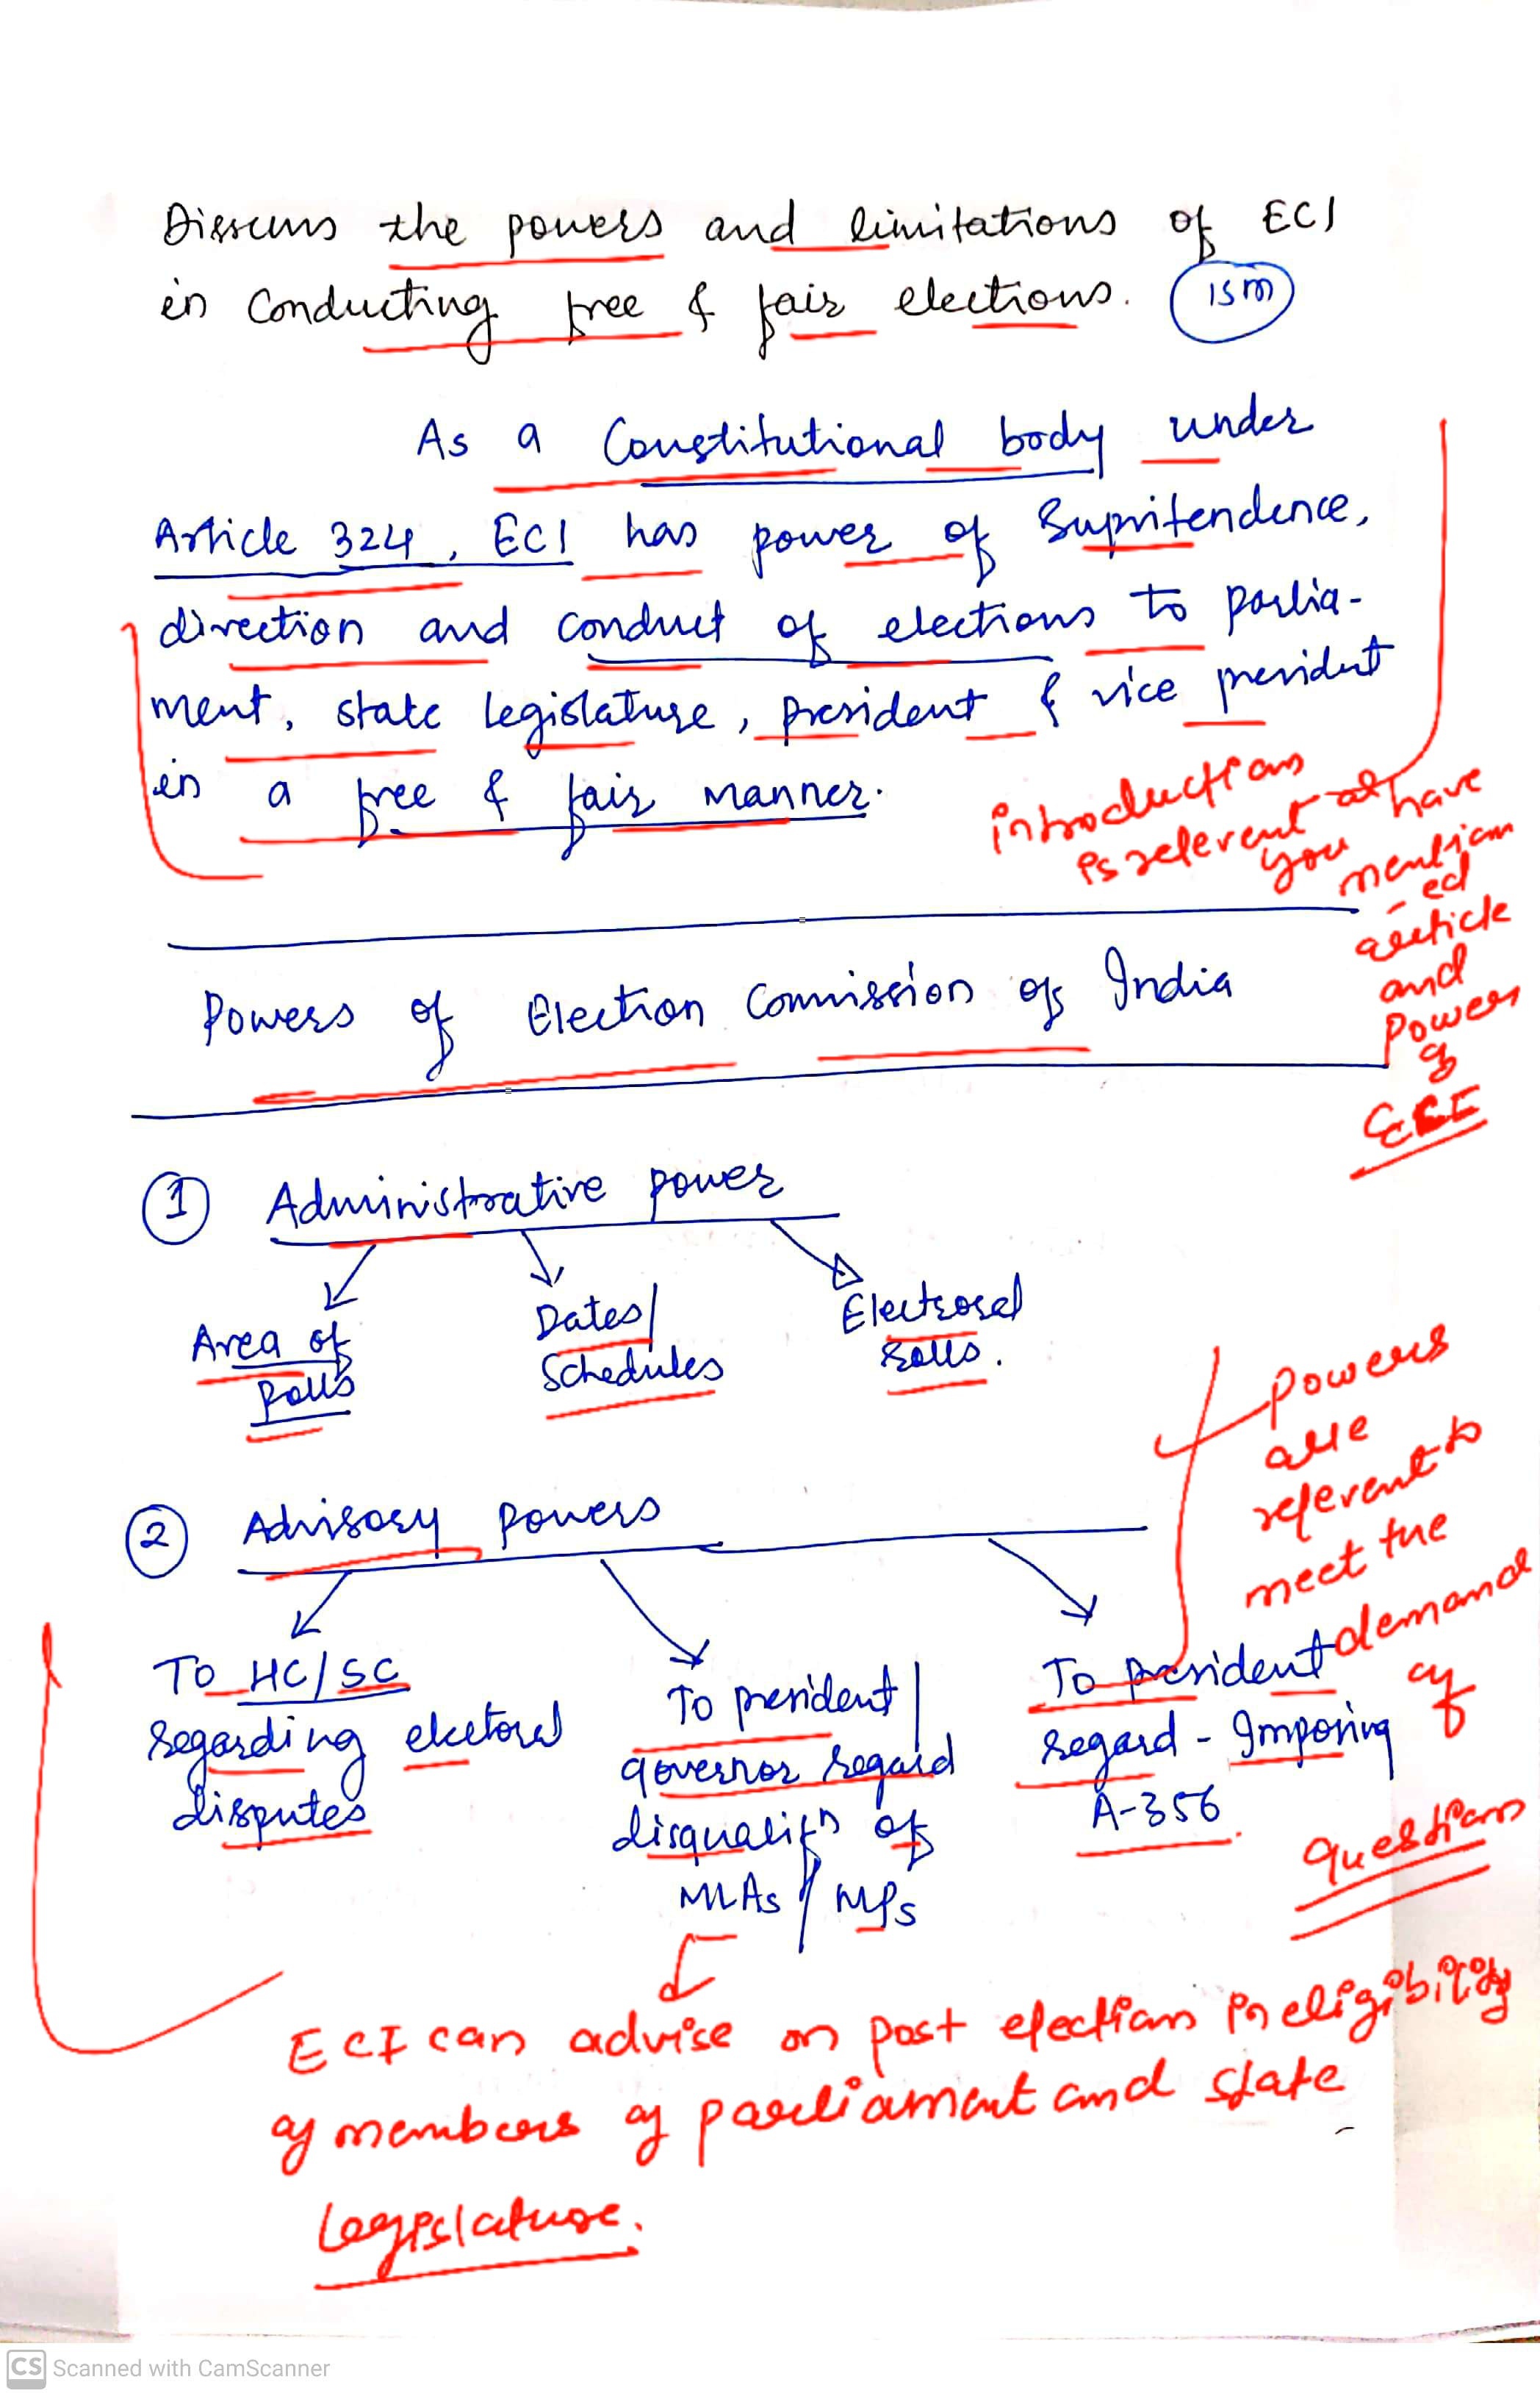 Discuss the powers and limitations of ECI
in Conducting free & fair elections. 15m
As a Constitutional body under
Article 324, ECI has power of Supritendence,
direction and conduct of elections to parlia-
ment, state legislature, president & vice president
in a free & fair manner.
introduction
is relevent as
you have
mention
ed
article
and
Powers
of
ECI
Powers of Election Commission of India
① Administrative power
Area of
Polls
Dates/
Schedules
Electoral
rolls.
② Advisory Powers
To HC/SC
regarding electoral
disputes
To president/
governor regard
disqualifn of
MLAs / MPs
To president
regard - Imposing
A-356.
Powers
are
relevent to
meet the
demand
of
question
ECI can advise on post election ineligibility
of members of parliament and state
legislature.
CS Scanned with CamScanner